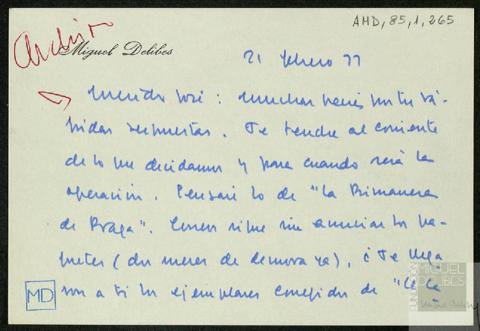 AMD, 85, 1, 265
Archivo
Miguel Delibes
21 febrero 77
Querido José: muchas gracias por tu rá-
pida respuesta. Te tendré al corriente
de lo que decidamos y para cuando será la
operación. Pensaré lo de "La Primavera
de Praga". Correos sigue sin anunciar los pa-
quetes (dos meses de demora ya). ¿Te llega
ron a ti los ejemplares corregidos de
MD
FUNDACIÓN
MIGUEL
DELIBES